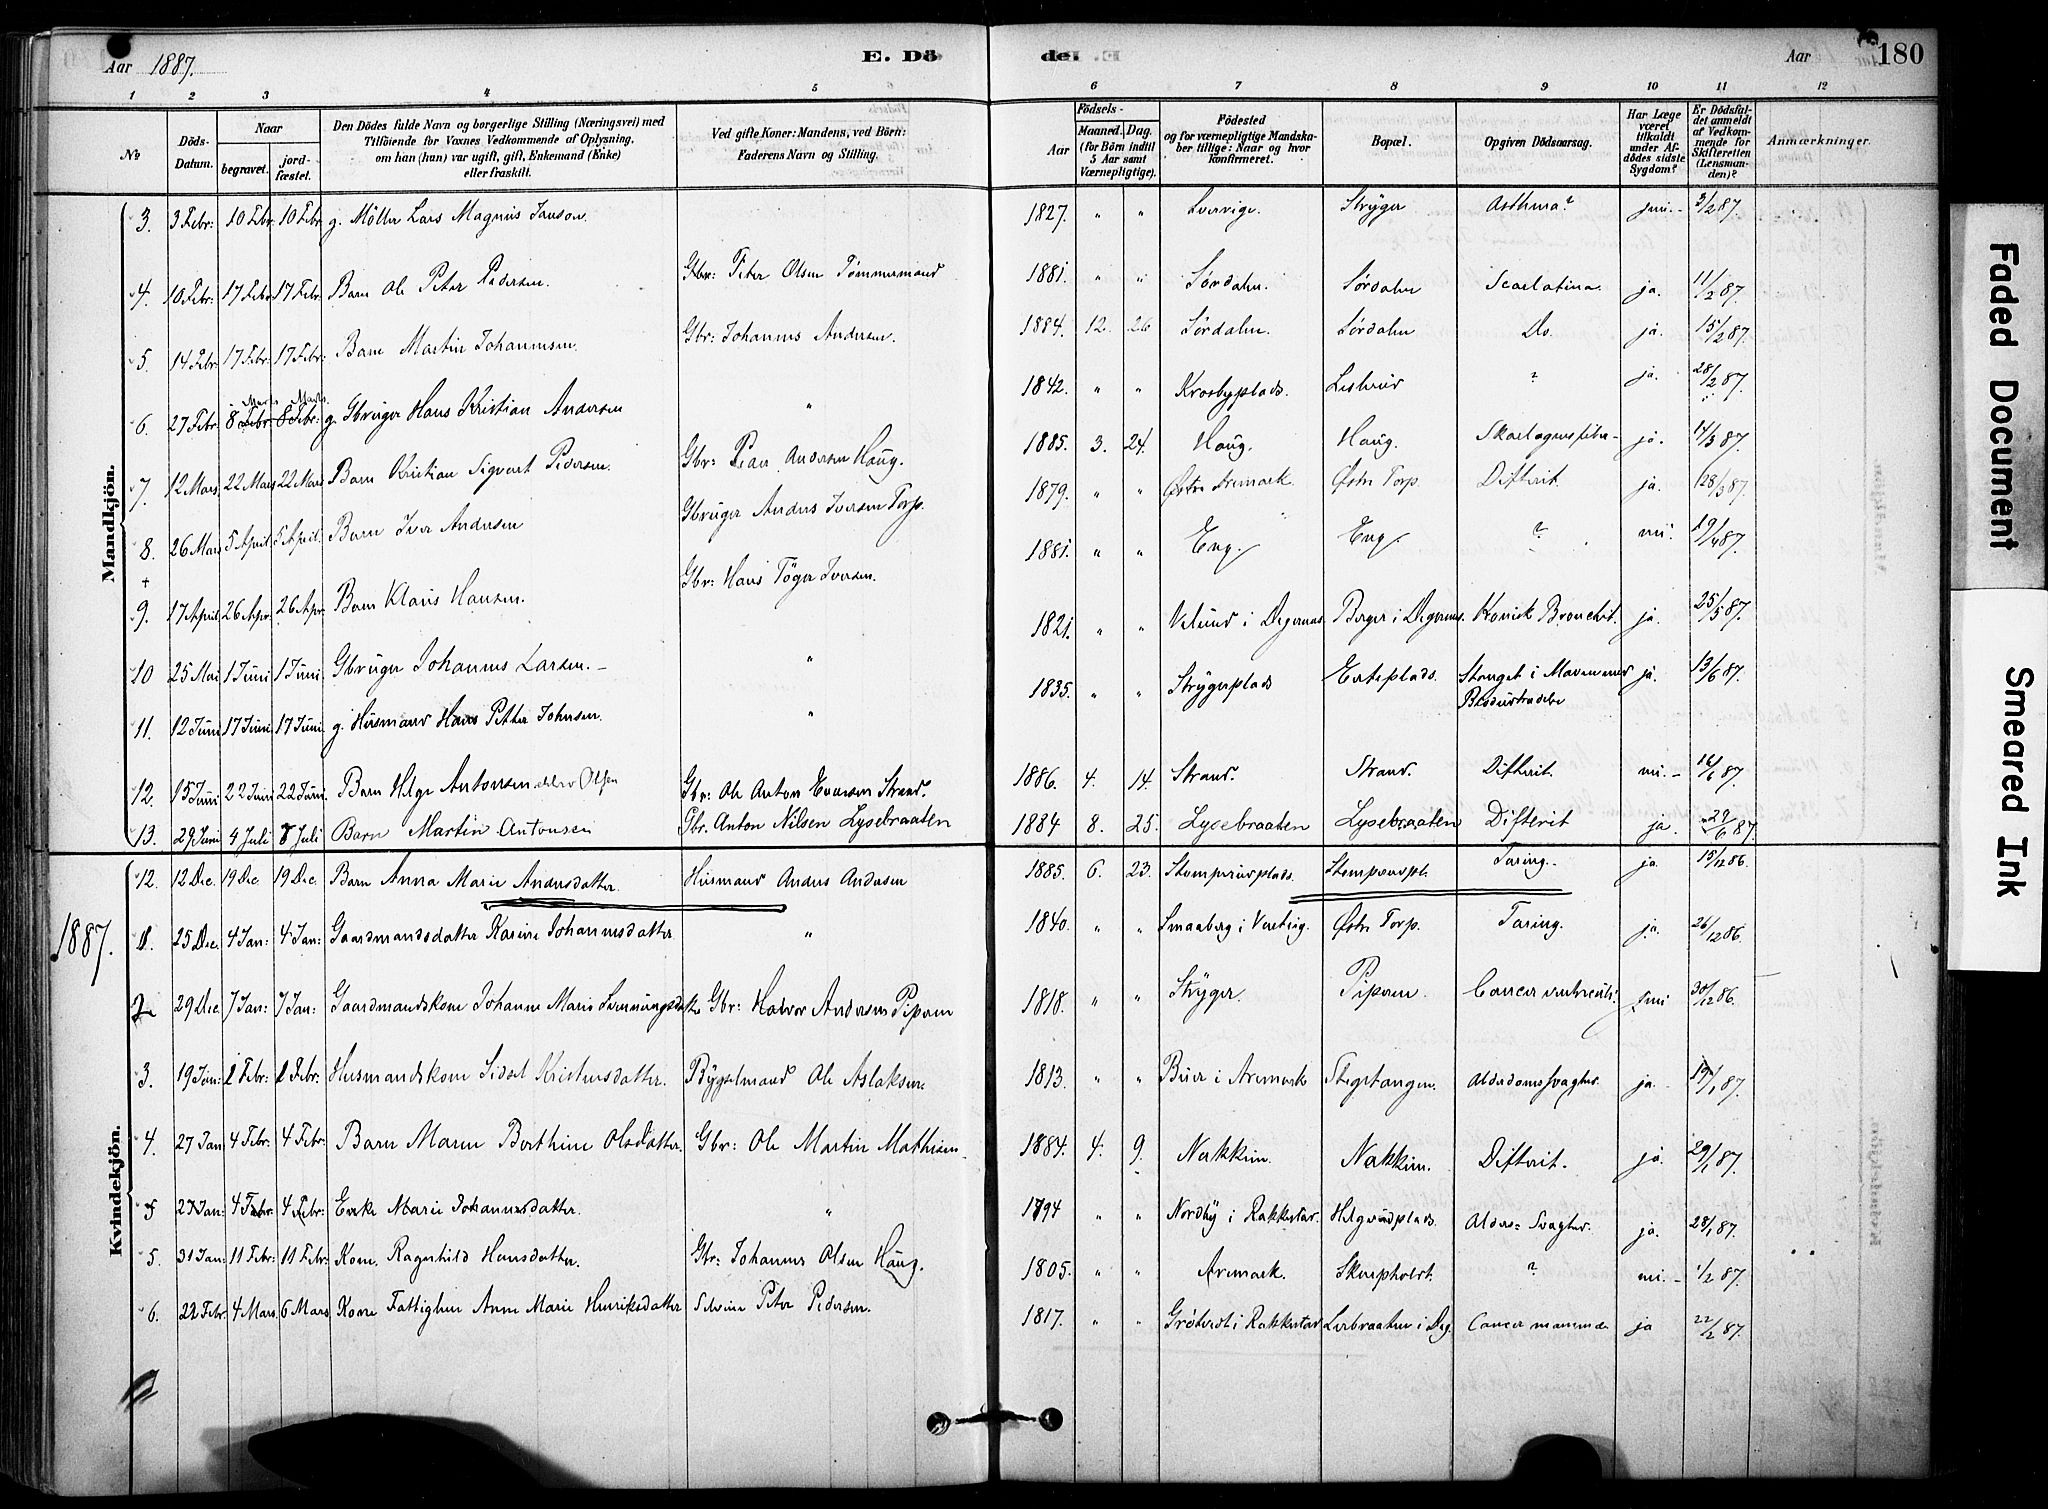 Aar 1887. E. Dö
de. Aar 180
1 2 3 4 5 6 7 8 9 10 11 12
№ Döds-Datum. Naar begravet. jord-fæstet. Den Dödes fulde Navn og borgerlige Stilling (Næringsvei) med Tilföiende for Voxnes Vedkommende af Oplysning, om han (hun) var ugift, gift, Enkemand (Enke) eller fraskilt. Ved gifte Koner: Mandens, ved Börn: Faderens Navn og Stilling. Aar Födsels- Maaned. Dag. (for Börn indtil 5 Aar samt Værnepligtige). Födested og for værnepligtige Mandskaber tillige: Naar og hvor konfirmeret. Bopæl. Opgiven Dödsaarsag. Har Læge været tilkaldt under Afdödes sidste Sygdom? Er Dödsfaldet anmeldt af Vedkommende for Skifteretten (Lensmanden)? Anmærkninger.
Mandkjön.
3. 3 Febr: 10 Febr: 10 Febr g. Möller Lars Magnus Janson 1827. " " Sverrige. Stryger Asthma? 3/2 87.
4. 10 Febr: 17 Febr 17 Febr. Barn Ole Peter Pedersen. Gbr: Peter Olsen Tömmermand 1881. " " Sørdalen. Sørdalen Scarlatina. ja. 11/2 87.
5. 14 Febr. 17 Febr. 17 Febr. Barn Martin Johannesen. Gbr: Johannes Andersen. 1884. 12. 26 Sørdalen. Sørdalen Do. ja. 15/2 87.
6. 27 Febr. 8 Febr Mars 8 Febr: Marts. g. Gbruger Hans Kristian Andersen " 1842. " " Krosbyplads. ? ja. 28/2 87.
7. 12 Mars 22 Mars 22 Mars Barn Kristian Sigvart Pedersen. Gbr: Peder Andersen Haug. 1885. 3. 24. Haug. Haug. ja. 14/3 87.
8. 26 Mars 5 April 5 April. Barn Iver Andersen Gbruger Anders Iversen Torp. 1879. " " Østre Aremark. Østre Torp. Difterit. ja. 28/3 87.
+
9. 17 April 26 Apr: 26 Apr: Barn Klaus Hansen. Gbr: Hans Töger Iversen. 1881. " " Eng. Eng. ? nei. 19/4 87.
10 25 Mai 1 Juni 1 Juni Gbruger Johannes Larsen. " 1821. " " Velund i Degernes. Berger i Degernes. Kronisk Bronchit. ja. 25/5 87.
11. 12 Juni 17 Juni 17 Juni. g. Husmand Hans Petter Johnsen. " 1835. " " Strygerplads Erteplads. Stanget i Maven med Blodudtrædelse ja. 13/6 87.
12. 15 Juni 22 Juni 22 Juni. Barn Helge Antonsen eller Olsen Gbr: Ole Anton Evensen Strand. 1886. 4. 14. Strand. Strand. Difterit. nei. 16/6 87.
13. 29 Juni 4 Juli 8 Juli Barn Martin Antonsen Gbr. Anton Nilsen Lysebraaten 1884 8. 25. Lysebraaten Lysebraaten Difterit ja. 29/6 87.
12. 12 Dec. 19 Dec. 19 Dec. Barn Anna Marie Andersdatter. Husmand Anders Andersen 1885. 6. 23. Stomperudplads. Stomperudpl. Tæring. ja 15/12 86.
1887.
Kvindekjön.
1. 25 Dec. 4 Jan: 4 Jan: Gaardmandsdatter Karine Johannesdatter " 1840. " " Østre Torp. Tæring. ja. 26/12 86.
2 29 Dec. 7 Jan: 7 Jan: Gaardmandskone Johanne Marie Gbr: Halvor Andersen Piperen 1818. " " Stryger. Piperen. Cancer ventriculi. 30/12 86.
3. 19 Jan: 2 Febr: 2 Febr. Husmandskone Sidsel Kristensdatter. Bygselmand Ole Aslaksen 1813. " " Buer i Aremark Stegetangen. Alderdomssvaghed. ja. 19/1 87.
4. 27 Jan 4 Febr. 4 Febr: Barn Maren Berthine Olsdatter. Gbr: Ole Martin Mathisen 1884. 4. 9. Nakkim. Nakkim. Difterit. ja. 29/1 87.
5 27 Jan: 4 Febr: 4 Febr: Enke Marie Johannesdatter. " 1794 " " Nordby i Rakkestad. Helgerudplads. Alders-Svaghed. ja. 28/1 87.
5. 31 Jan: 11 Febr: 11 Febr: Kone Ragnhild Hansdatter. Gbr: Johannes Olsen Haug. 1805. " " Aremark. Skarpholt. ? nei. 1/2 87.
6. 22 Febr. 4 Mars. 6 Mars Kone Fattiglem Anne Marie Henriksdatter Selveier Peter Pedersen. 1817. " " i Rakkestad i Deg. Cancer mammae ja 22/2 87.
Faded Document
Smeared Ink